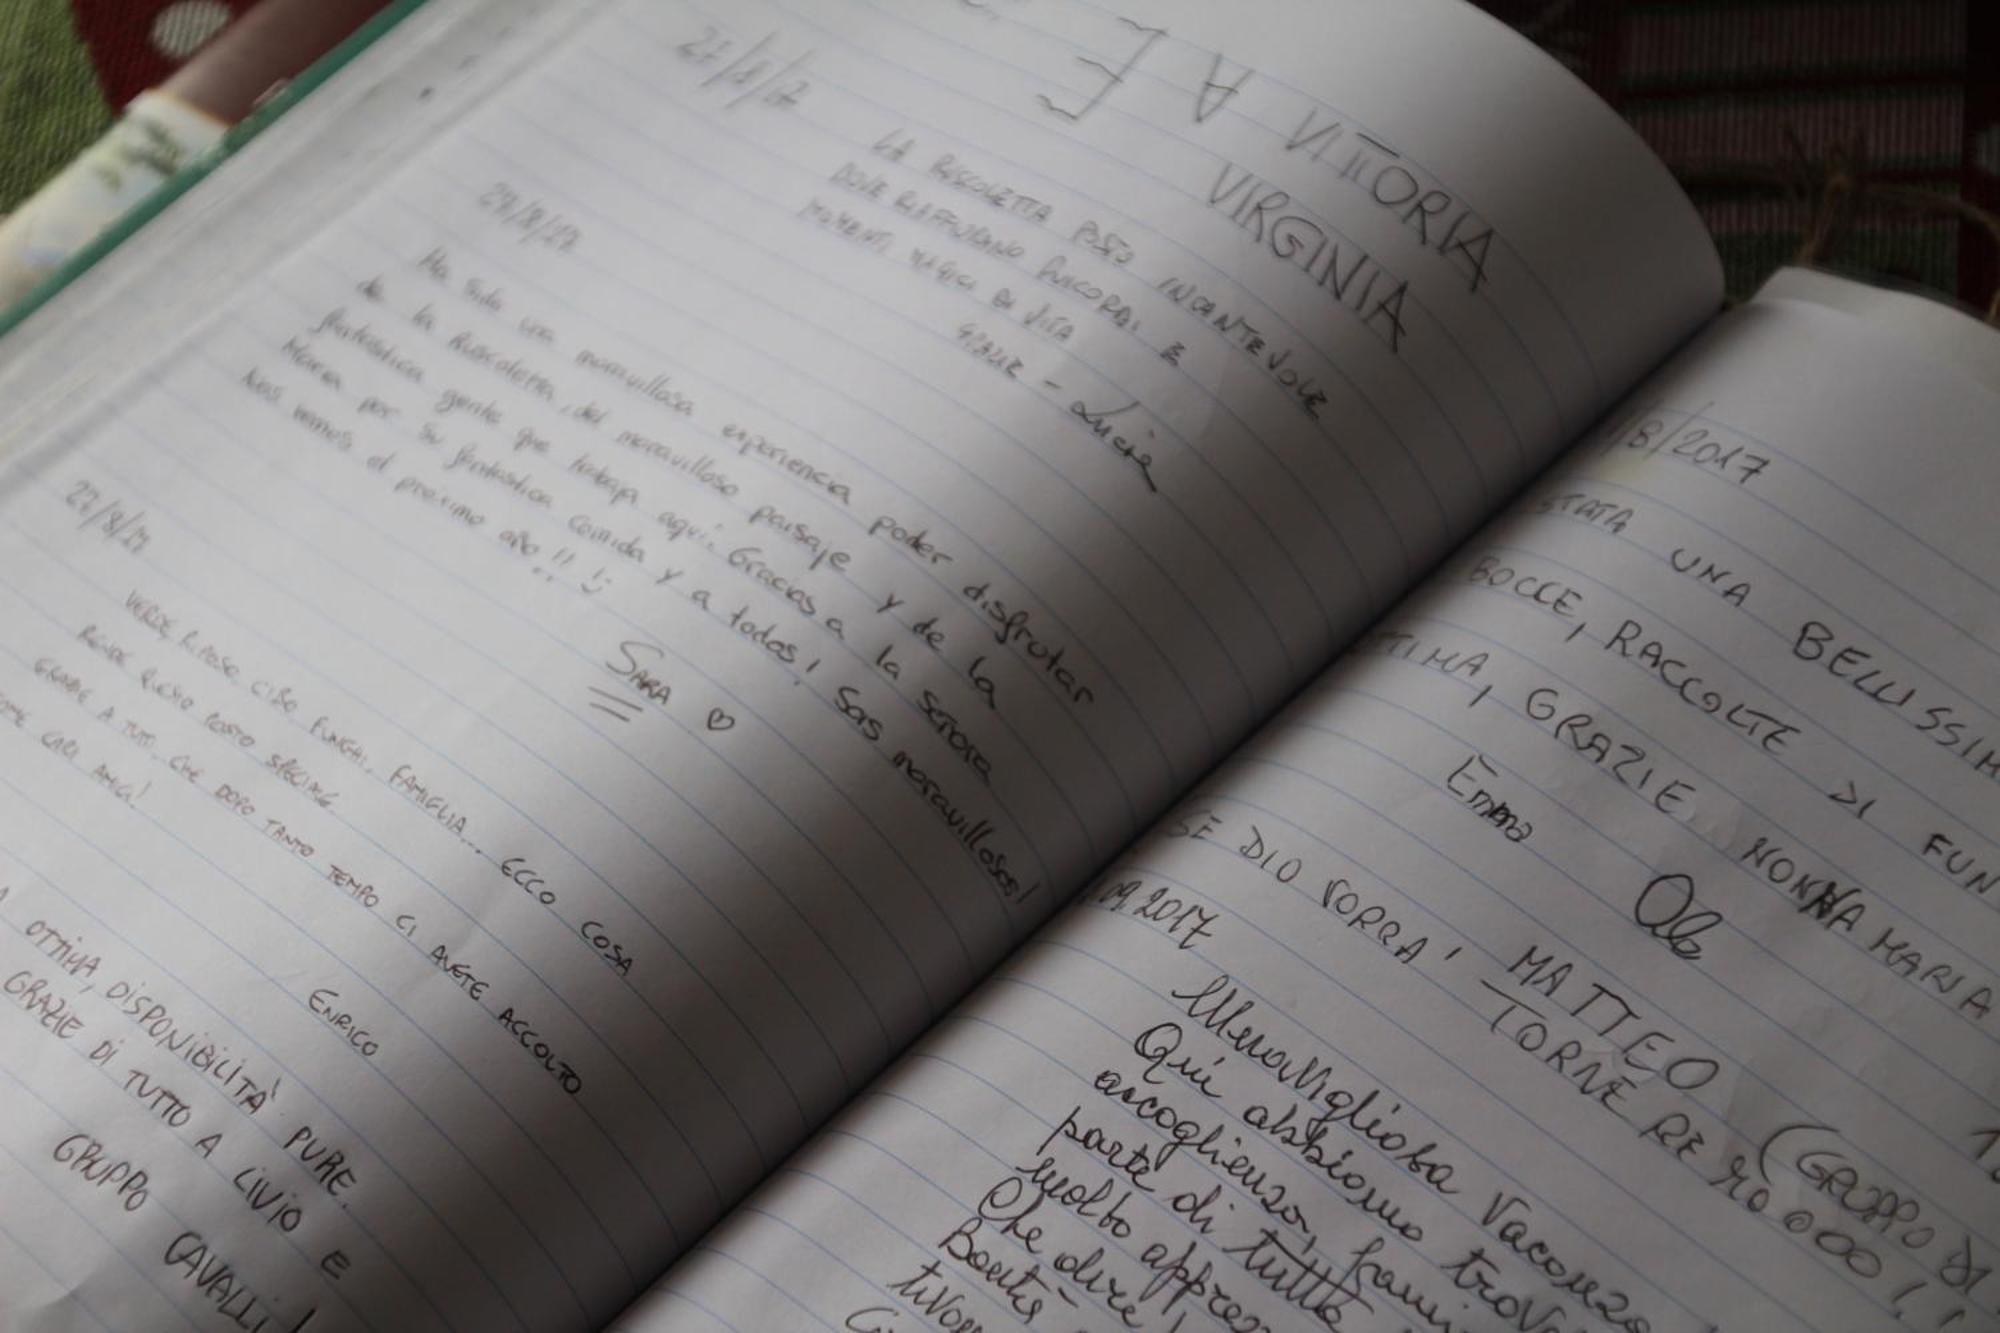 E A VITTORIA
VIRGINIA
27/8/17
LA RUSCOLETTA POSTO INCANTEVOLE
DOVE RIAFFIORANO RICORDI E
MOMENTI MAGICI DI VITA
GRAZIE - Lucia
27/8/17
Ha sido una maravillosa experiencia poder disfrutar
de la Ruscoletta, del maravilloso paisaje y de la
fantástica gente que trabaja aquí. Gracias a la señora
Maria por su fantastica comida y a todos! Sois maravillosos!
Nos vemos el proximo año!!
SARA ♡
27/8/17
VERDE, RIPOSO CIBO FUNGHI, FAMIGLIA... ECCO COSA
RENDE QUESTO POSTO SPECIALE
GRAZIE A TUTTI CHE DOPO TANTO TEMPO CI AVETE ACCOLTO
COME CARI AMICI!
ENRICO
OTTIMA, DISPONIBILITA' PURE.
GRAZIE DI TUTTO A LIVIO E
GRUPPO CAVALLI!
/8/2017
STATA UNA BELLISSIM
BOCCE, RACCOLTE DI FUN
TIMA, GRAZIE NONNA MARIA
Emma
SE DIO VORRA', TORNERE MO OOO!!
MATTEO (GRUPPO DI
.09.2017
Meravigliosa Vacanza
Qui abbiamo trov
accoglienza, fami
parte di tutto
Molto apprez
Che dire
Bontà